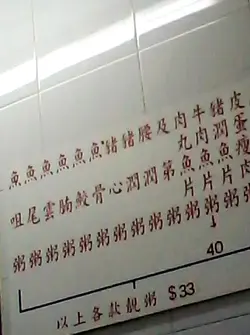 皮蛋瘦肉粥
豬潤魚片粥
牛肉魚片粥
肉丸魚片粥
及第粥
腰潤粥
豬潤粥
豬心粥
魚骨粥
魚鮫粥
魚腩粥
魚雲粥
魚尾粥
魚咀粥
40
以上各款靚粥 $33